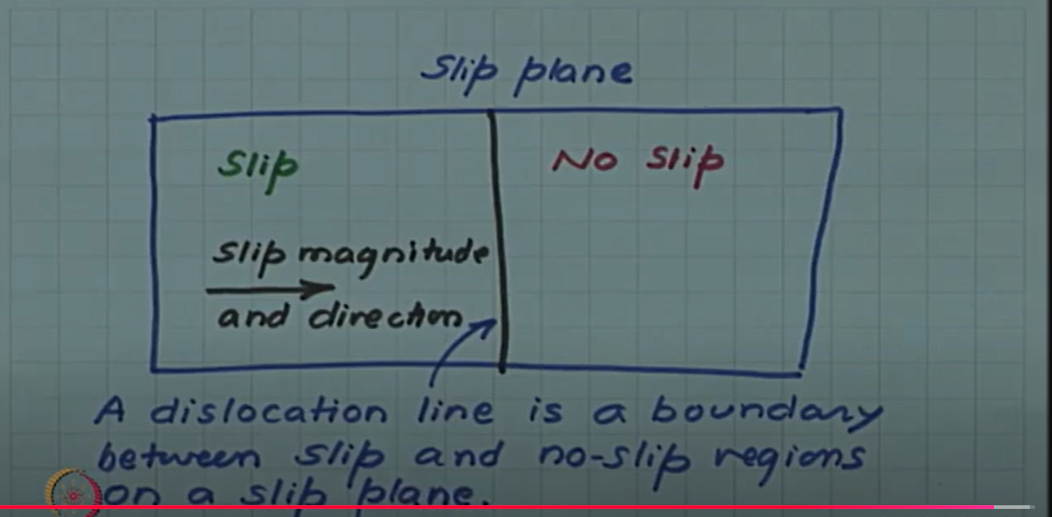 Slip plane
Slip
No Slip
Slip magnitude
and direction
A dislocation line is a boundary
between slip and no-slip regions
on a slip plane.